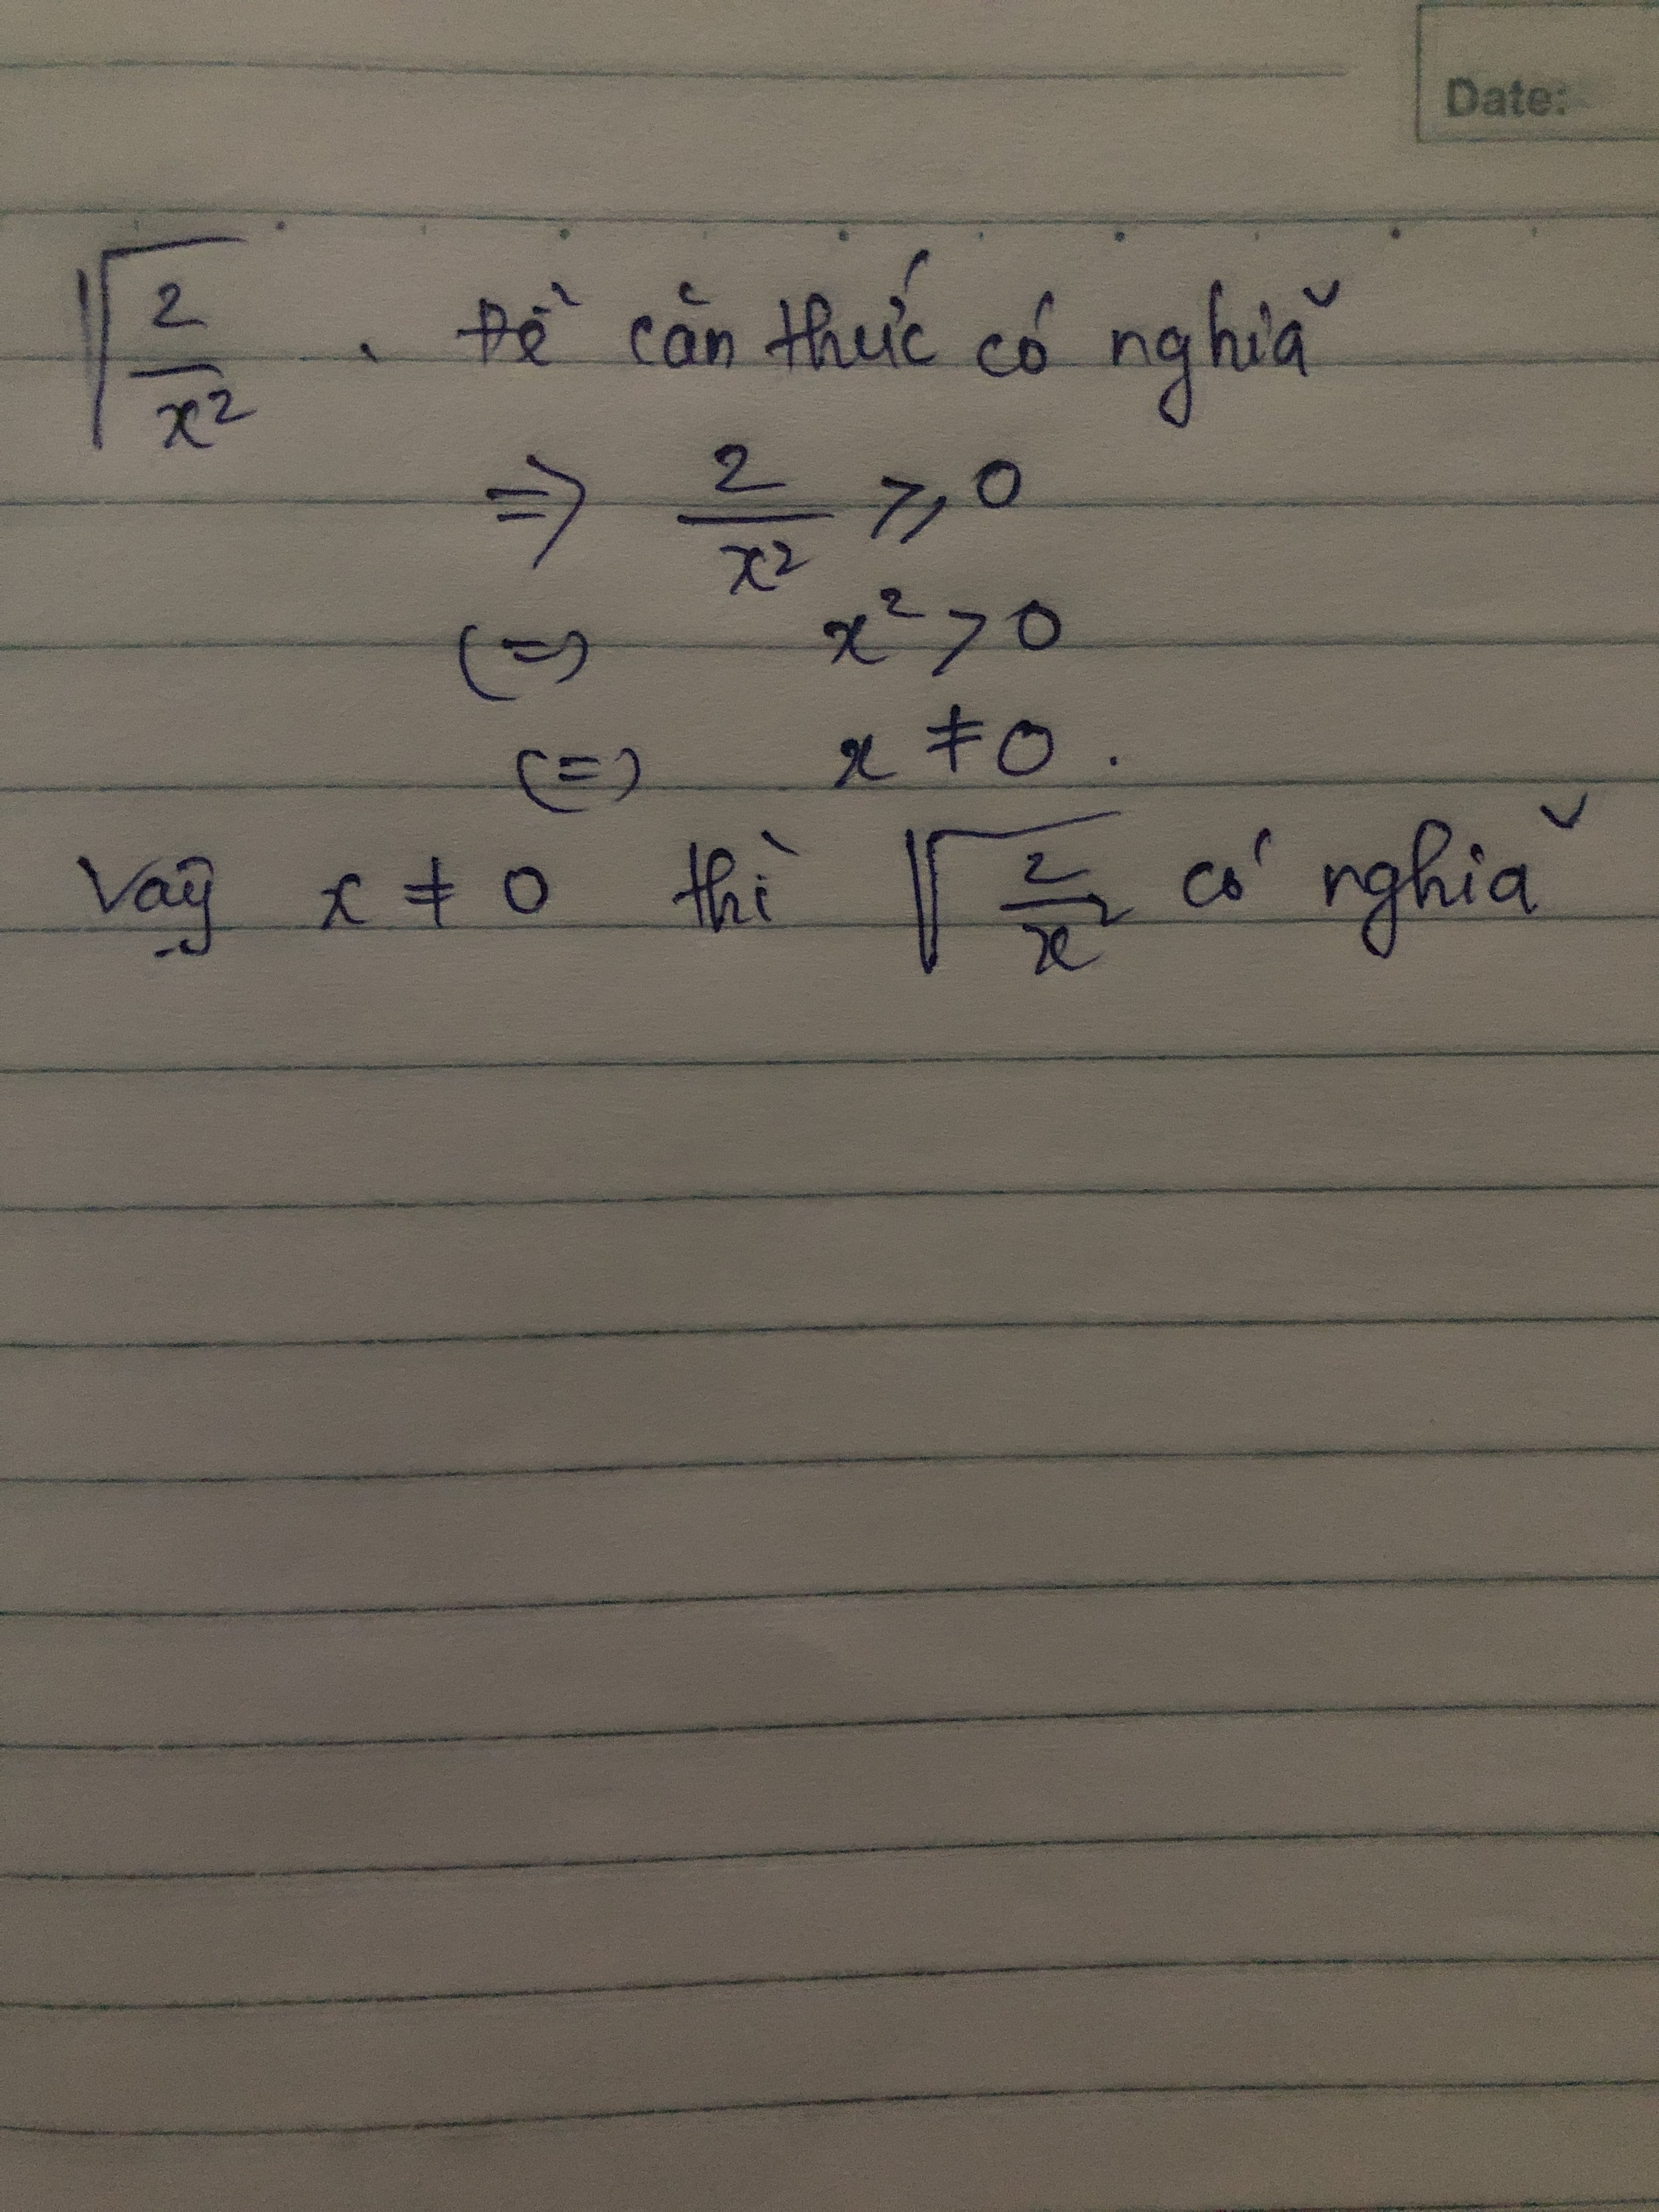 Date:
√(2/x²) . Để căn thức có nghĩa
=> 2/x² ≥ 0
(=) x² > 0
(=) x ≠ 0.
Vậy x ≠ 0 thì √(2/x²) có nghĩa